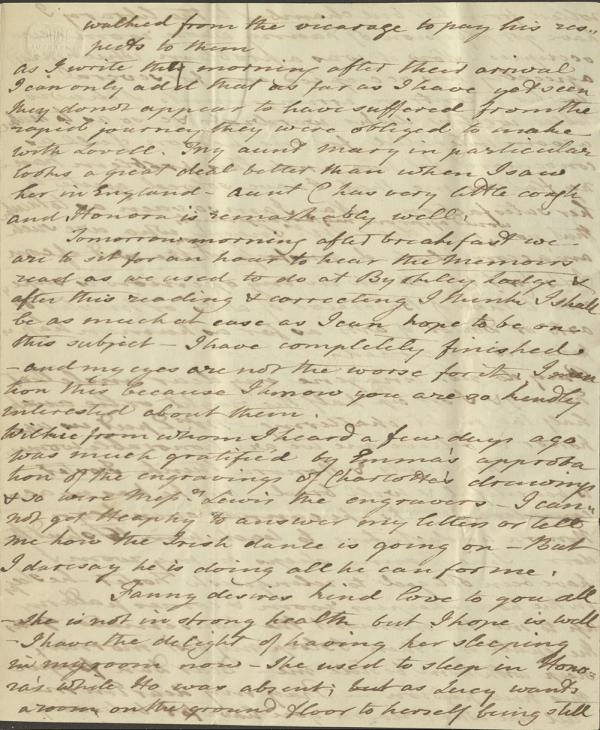 walked from the vicarage to pay his res-
pects to them
as I write the morning after their arrival
I can only add that as far as I have yet seen
they do not appear to have suffered from the
rapid journey they were obliged to make
with Lovell. My aunt Mary in particular
looks a great deal better than when I saw
her in England - aunt C has very little cough
and Honora is remarkably well.
Tomorrow morning after breakfast we
are to sit for an hour to hear the Memoirs
read as we used to do at Byrkley Lodge &
after this reading & correcting I think I shall
be as much at ease as I can hope to be on
this subject - I have completely finished
- and my eyes are not the worse for it. I men
tion this because I know you are so kindly
interested about them.
Wilkie from whom I heard a few days ago
was much gratified by Emma's approba
tion of the engravings of Charlotte's drawings
& so were Messrs Lewis the engravers - I can-
not get Heaphy to answer my letters or tell
me how the Irish dance is going on - But
I daresay he is doing all he can for me.
Fanny desires kind love to you all
- she is not in strong health but I hope is well
- I have the delight of having her sleeping
in my room now - she used to sleep in Hono-
ra's while Ho was absent; but as Lucy wants
a room on the ground floor to herself being still